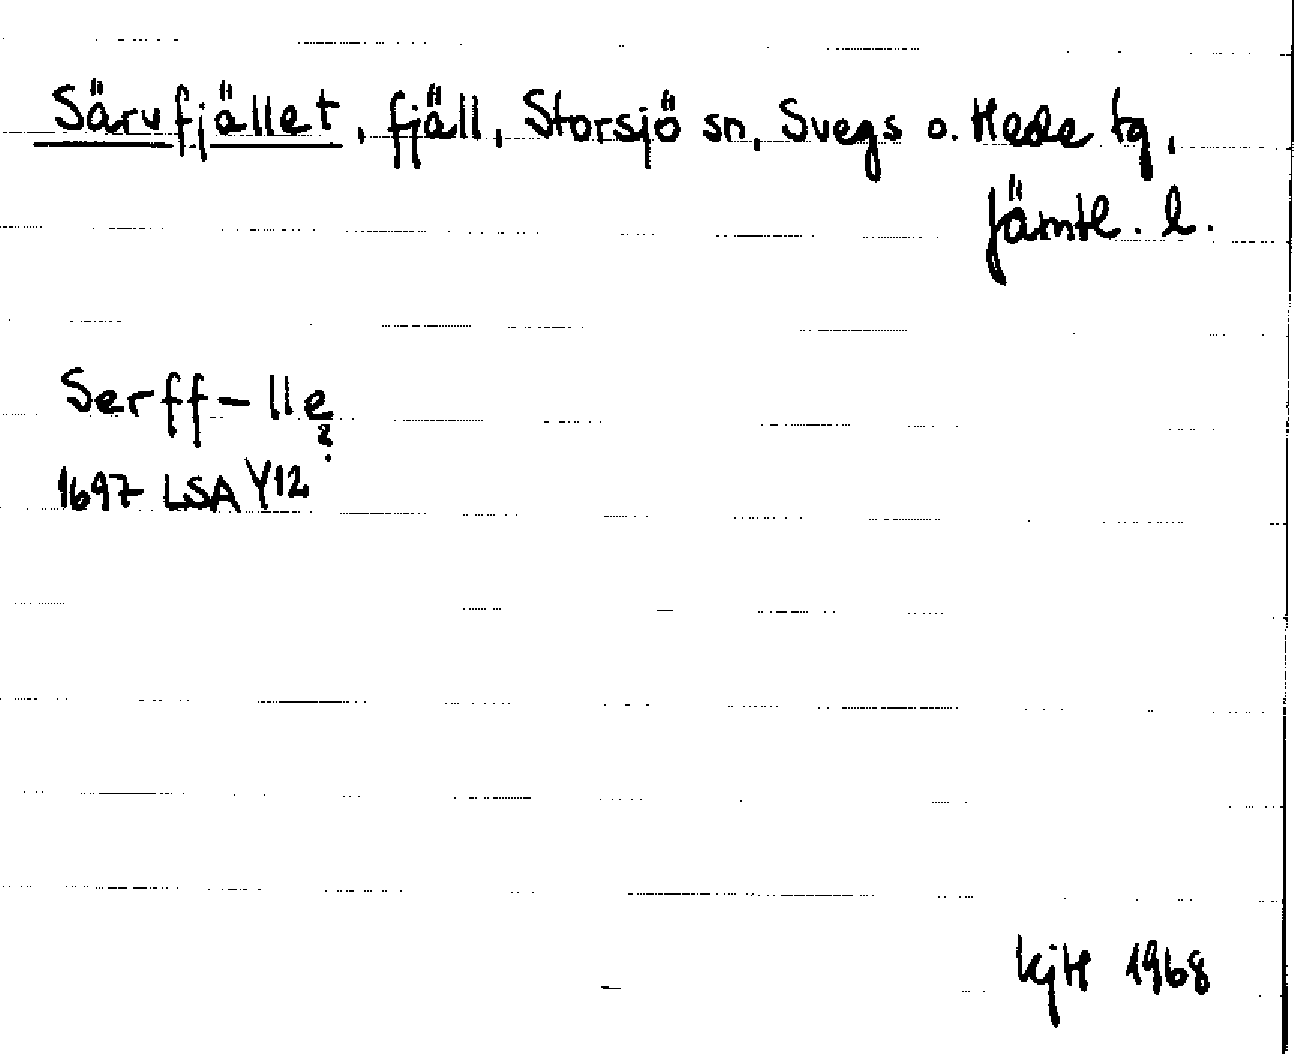 Särvfjället, fjäll, Storsjö sn, Svegs o. Hede tg,
Jämtl. l.
Serff-lle
?
1697 LSA Y12
KjH 1968